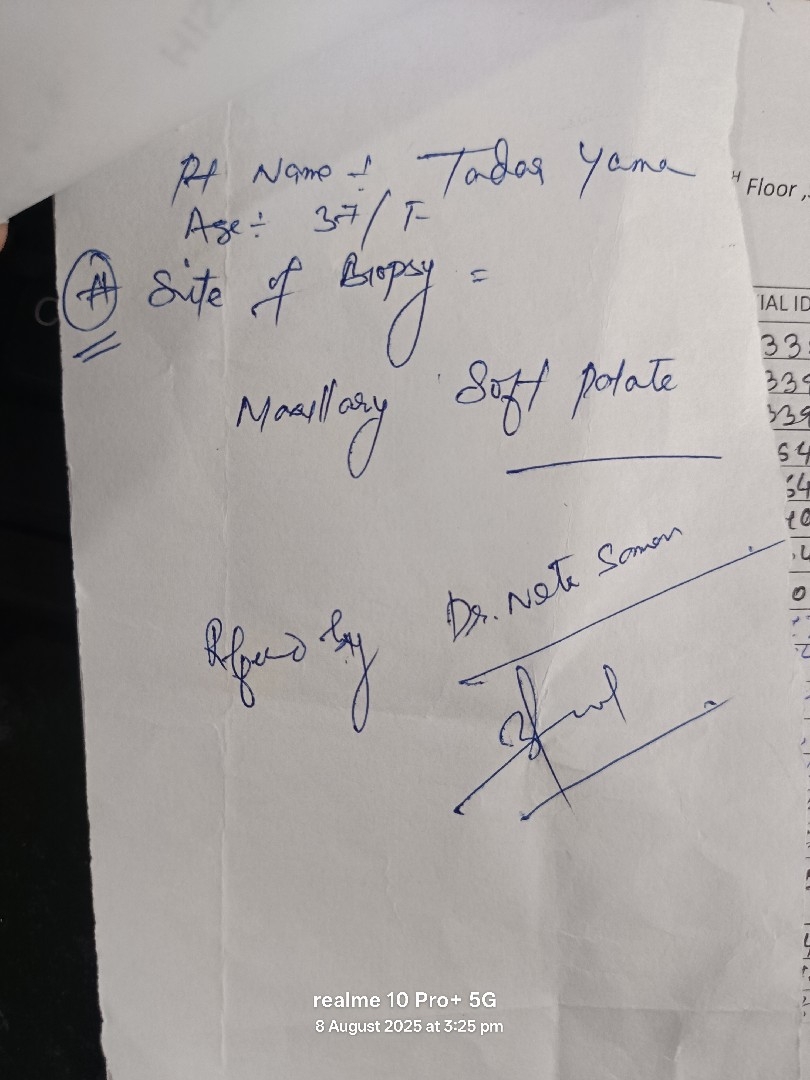 Pt Name :- Tadar Yama
Age :- 37/F
(A) Site of Biopsy =
Maxillary Soft Palate
Dr. Neta Soman
Refered by
H Floor,
IAL ID
33
339
339
64
64
realme 10 Pro+ 5G
8 August 2025 at 3:25 pm